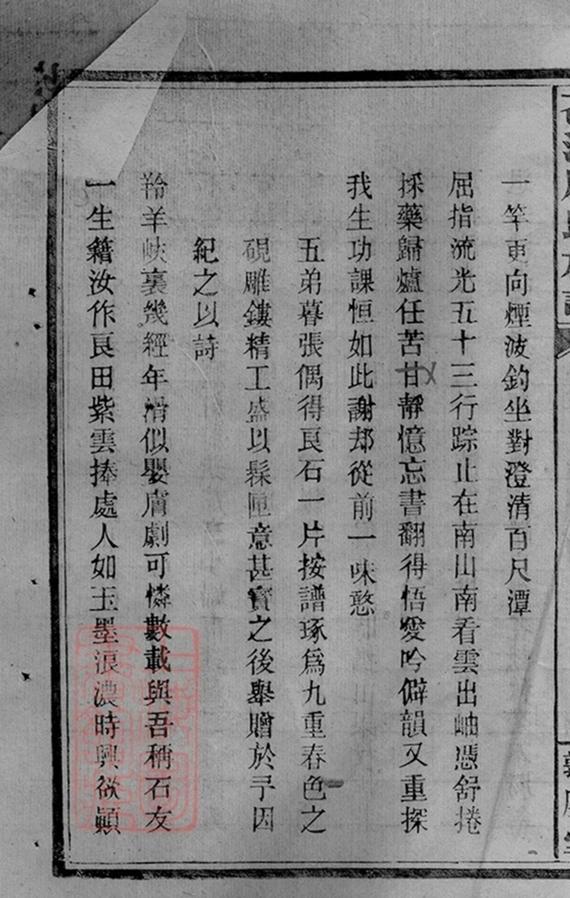 一竿更向煙波釣坐對澄清百尺潭
屈指流光五十三行踪止在南山南看雲出岫憑舒捲
採藥歸爐任苦甘靜憶忘書翻得悟愛吟僻韻又重探
我生功課恒如此謝却從前一味憨
五弟暮張偶得良石一片按譜琢爲九重春色之
硯雕鏤精工盛以髹匣意甚寳之後舉贈於予因
紀之以詩
羚羊峽裏幾經年滑似嬰膚劇可憐數載與吾稱石友
一生籍汝作良田紫雲捧處人如玉墨浪濃時興欲顛